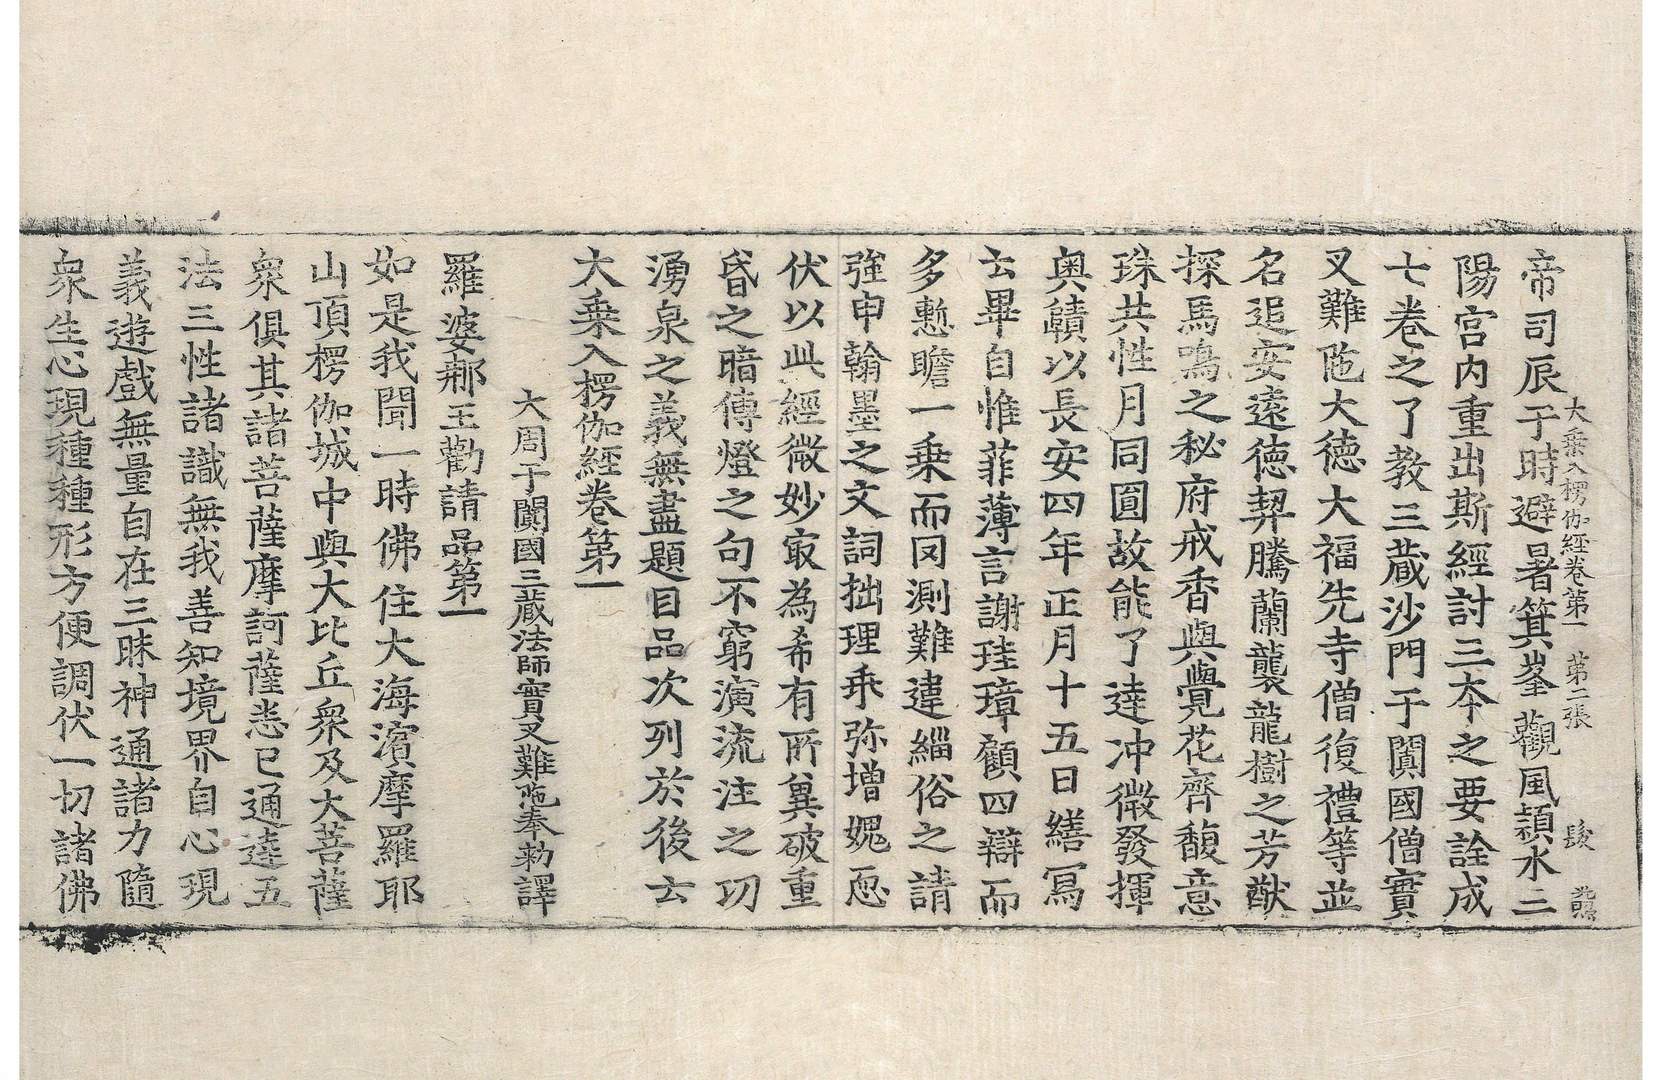 帝司辰于時避暑箕峯觀風頴水三
大乗入楞伽經卷第一 第二張 髮
陽宮内重出斯經討三本之要詮成
七卷之了教三蔵沙門于闐國僧實
叉難陁大德大福先寺僧復禮等並
名追安遠德契騰蘭襲龍樹之芳猷
探馬鳴之秘府戒香與覺花齊馥意
珠共性月同圓故能了達冲微發揮
奥賾以長安四年正月十五日繕寫
云畢自惟菲薄言謝珪璋顧四辯而
多慙瞻一乗而罔測難違緇俗之請
強申翰墨之文詞拙理乖弥增媿恧
伏以此經微妙㝡為希有所冀破重
昏之暗傳燈之句不窮演流注之功
湧泉之義無盡題目品次列於後云
大乗入楞伽經卷第一
大周于闐國三蔵法師實叉難陁奉勑譯
羅婆那王勸請品第一
如是我聞一時佛住大海濱摩羅耶
山頂楞伽城中與大比丘衆及大菩薩
衆俱其諸菩薩摩訶薩悉已通達五
法三性諸識無我善知境界自心現
義遊戲無量自在三昧神通諸力隨
衆生心現種種形方便調伏一切諸佛